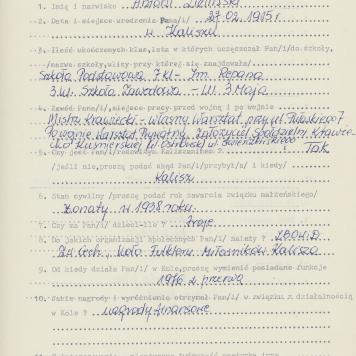 1. Imię i nazwisko Antoni Zieliński
2. Data i miejsce urodzenia Pa/i/ 27.02.1915 r.
w Kaliszu
3. Ilość ukończonych klas, lata w których uczęszczał Pan/i/do szkoły,
/nazwa szkoły,
Szkoła Podstawowa 7 kl - Im. Reja
3 kl. Szkoła Zawodowa - Ul. 3 Maja
4. Zawód Pana/i/, miejsce pracy przed wojną i po wojnie
Mistrz Krawiecki - własny Warsztat przy ul. Pułaskiego 7
Powojnie Warsztat Prywatny, założyciel Spółdzielni Krawiec
5. Czy jest Pan/i/ rodowitym Kaliszaninem ? Tak
/jeśli nie, proszę podać skąd Pan/i/przybył/a/ i kiedy/
Kalisz
6. Stan cywilny /proszę podać rok zawarcia związku małżeńskiego/
Żonaty w 1938 roku
7. Czy ma Pan/i/ dzieci-ile ? troje
8. Do jakich organizacji społecznych Pan/i/ należy ? ZBOWiD
Koło Miłośników Kalisza
9. Od kiedy działa Pan/i/ w Kole, proszę wymienić posiadane funkcje
1976 z przerwą
10. Jakie nagrody i wyróżnienia otrzymał Pan/i/ w związku z działalnością
w Kole ? nagrody finansowe